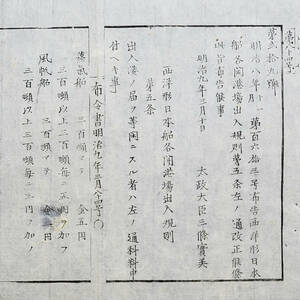 第弐拾九號
明治八年十一月第百六十一号布告西洋形日本
船各開港場出入規則第五条左ノ通改正候条
此旨布告候事
明治九年三月十日 太政大臣三條實美
西洋形日本船各開港場出入規則
第五条
出入港ノ届ヲ等閑ニスル者ハ左ノ通科料申
付ヘキ事
布令書明治九年三月
蒸気船
三百噸マテ 金五円
三百噸以上三百噸毎ニ五円ヲ加フ
風帆船
三百噸マテ 金三円
三百噸以上三百噸毎ニ三円ヲ加フ